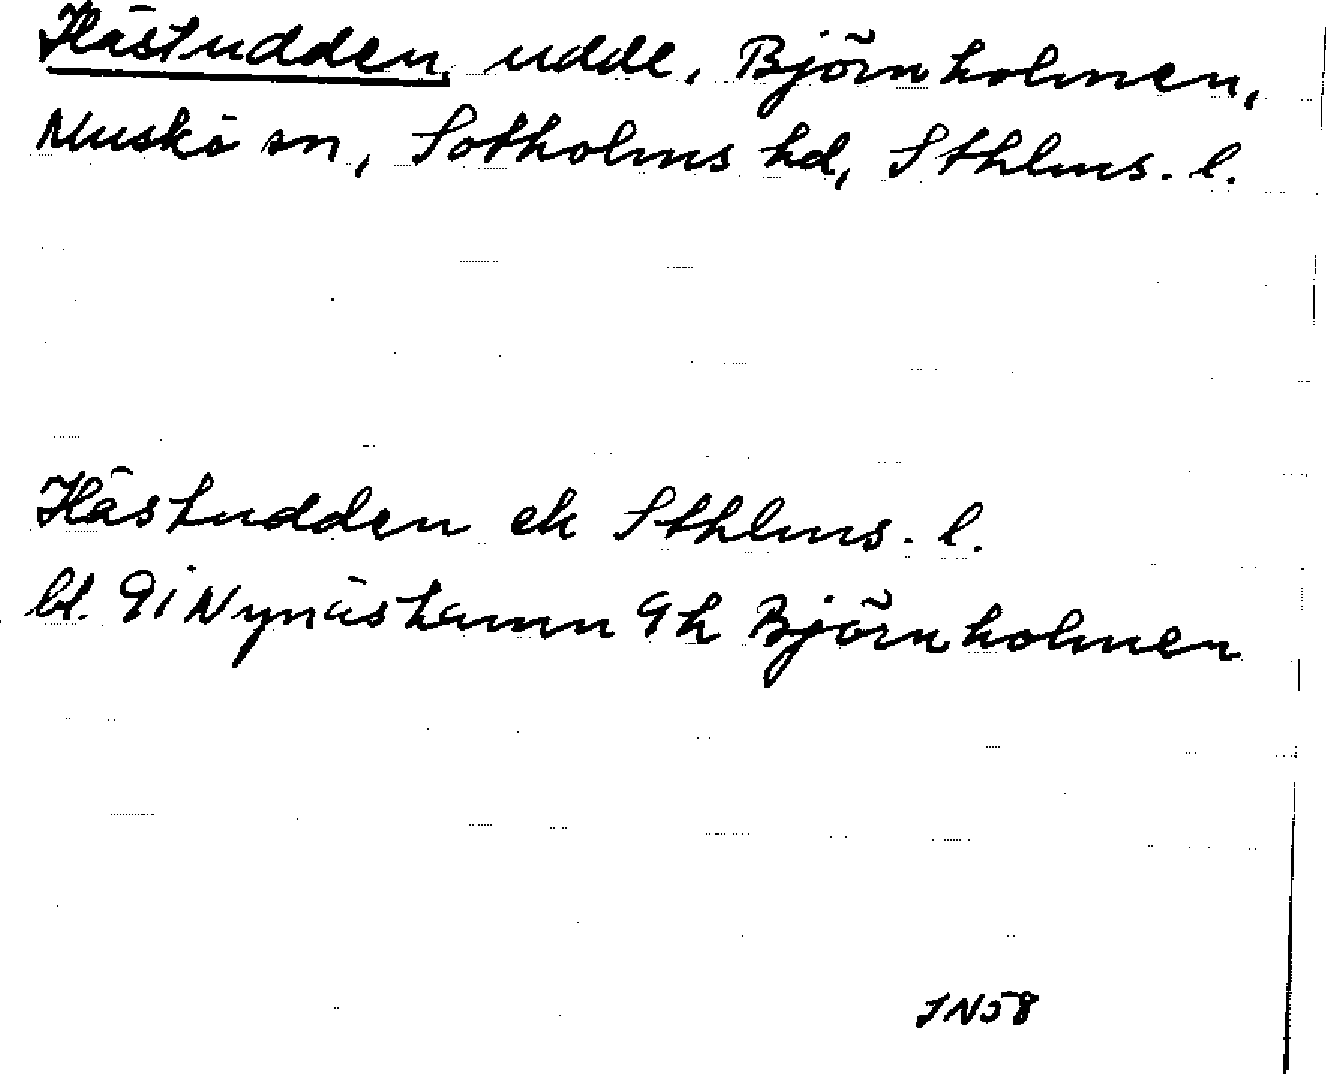 Hästudden, udde, Björnholmen,
Muskö sn, Sotholms hd, Sthlms. l.
Hästudden ek Sthlms. l.
bl. 9i Nynäshamn 9h Björnholmen
JN58